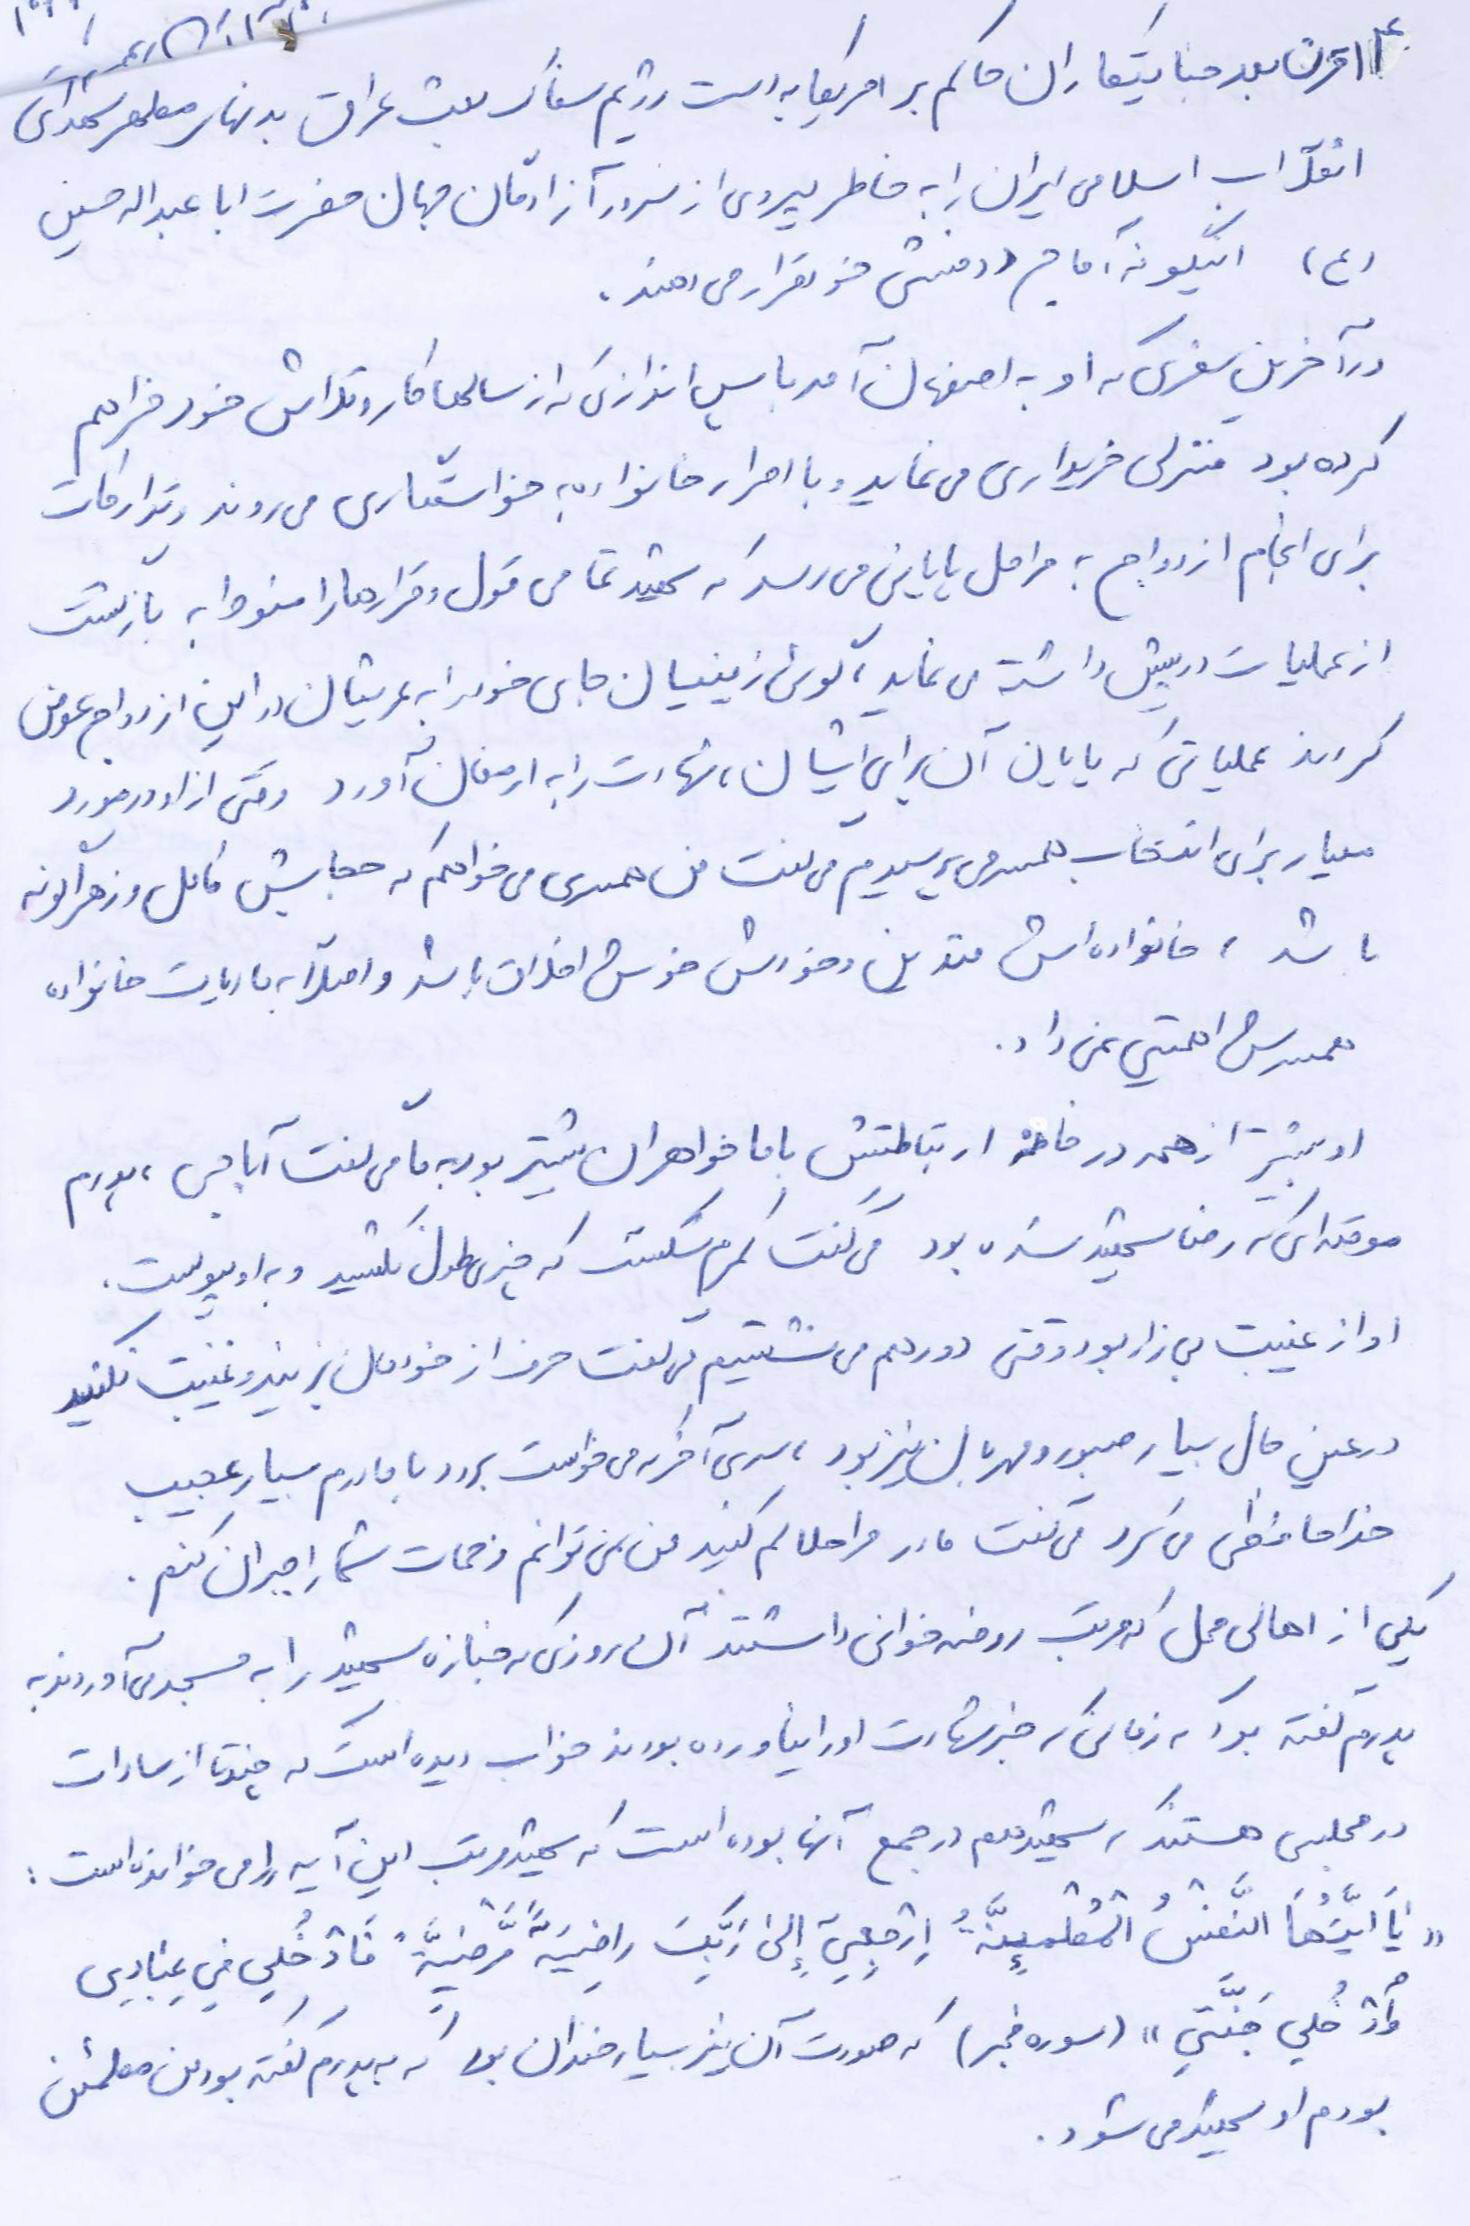 ۱۴ قرن بعد جنایتکاران حاکم بر امریکا به دست رژیم سفاک بعث عراق بدنهای مطهر شهدای
انقلاب اسلامی ایران را به خاطر پیروی از سرور آزادگان جهان حضرت ابا عبدالله حسین
(ع) اینگونه آماج ددمنشی خود قرار می دهند.
در آخرین سفری که او به اصفهان آمد با پس اندازی که از سالها کار و تلاش خود فراهم
کرده بود منزلی خریداری می نماید و با اصرار خانواده به خواستگاری می روند و تدارکات
برای انجام ازدواج به مراحل پایانی می رسد که شهید تمامی قول و قرارها را منوط به بازگشت
از عملیات در پیش داشته می نماید، گوئی زمینیان جای خود را به عرشیان در این ازدواج عوض
کردند عملیاتی که پایان آن برای ایشان، شهادت را به ارمغان آورد وقتی از او در مورد
معیار برای انتخاب همسر می پرسیدیم می گفت من همسری می خواهم که حجابش کامل و زهرا گونه
باشد، خانواده اش متدین و خودش خوش اخلاق باشد و اصلاً به مادیات خانواده
همسرش اهمیتی نمی داد.
او بیشتر از همه در خانه ارتباطش با ما خواهران بیشتر بود به ما می گفت آباجی، بهرم
موقعه ای که رضا شهید شده بود می گفت کمرم شکست که چیزی طول نکشید و به او پیوست.
او از غیبت بی زار بود وقتی دور هم می نشستیم می گفت حرف از خودمان بزنید و غیبت نکنید
در عین حال بسیار صبور و مهربان نیز بود، سری آخر که می خواست برود با مادرم بسیار عجیب
خداحافظی می کرد می گفت مادر مرا حلالم کنید من نمی توانم زحمات شما را جبران کنم.
یکی از اهالی محل که مرتب روضه خوانی داشتند آن روزی که جنازه شهید را به مسجد می آوردند به
پدرم گفته بود که زمانی که خبر شهادت او را نیاورده بودند خواب دیده است که چندتا از سادات
در مجلسی هستند که شهید هم در جمع آنها بوده است که شهید مرتب این آیه را می خوانده است:
«یَا اَیَّتُهَا النَّفْسُ الْمُطْمَئِنَّةُ اِرْجِعِي إِلىٰ رَبِّكِ راضِیَةً مَّرْضِیَّةً فَادْخُلِي فِي عِبَادِی
وَادْخُلِي جَنَّتِي» (سوره فجر) که صورت آن نیز بسیار خندان بود که به پدرم گفته بود من مطمئن
بودم او شهید می شود.